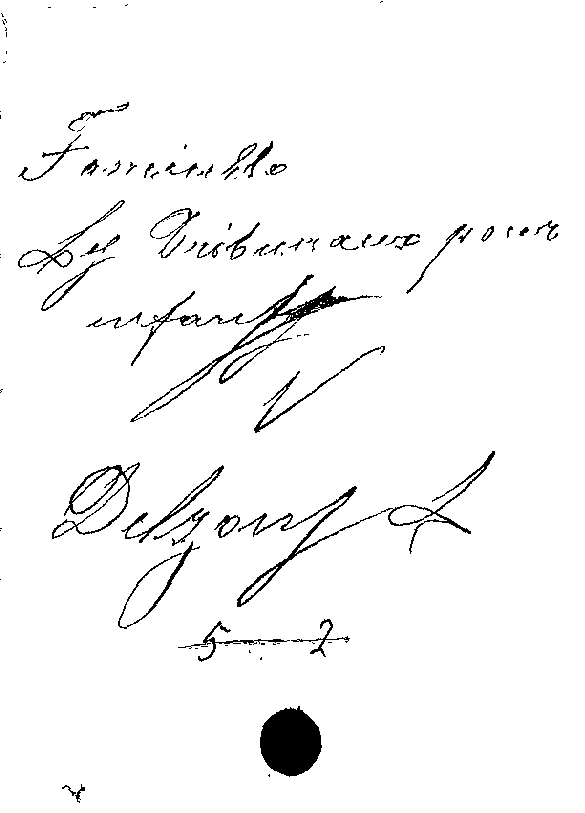 Les Tribunaux pour
enfants
V
Delzons L
5 2